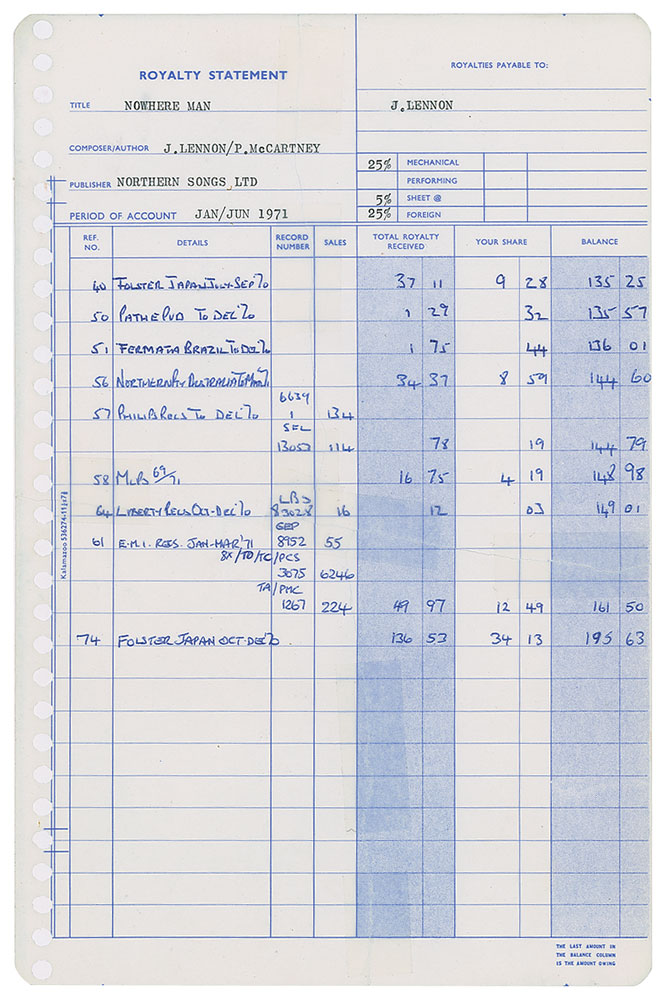 ROYALTY STATEMENT
ROYALTIES PAYABLE TO:
TITLE NOWHERE MAN
J.LENNON
COMPOSER/AUTHOR J.LENNON/P.McCARTNEY
25% MECHANICAL
PUBLISHER NORTHERN SONGS LTD
PERFORMING
5% SHEET @
PERIOD OF ACCOUNT JAN/JUN 1971
25% FOREIGN
REF. NO. DETAILS RECORD NUMBER SALES TOTAL ROYALTY RECEIVED YOUR SHARE BALANCE
40 FOLSTER JAPAN JULY-SEP 70 37 11 9 28 135 25
50 PATHE PUB TO DEC 70 1 29 32 135 57
51 FERMATA BRAZIL TO DEC 70 1 75 44 136 01
56 NORTHERN AUSTRALIA TO 34 37 8 59 144 60
6639
57 PHILIPS RECS TO DEC 70 1 134
SFL
13057 114 78 19 144 79
58 69/71 16 75 4 19 148 98
LBS
64 LIBERTY RECS OCT-DEC 70 83028 16 12 03 149 01
GEP
61 E.M.I. RECS. JAN-MAR '71 8952 55
8X/TD/TC/PCS
3075 6246
TA/PMC
1267 224 49 97 12 49 161 50
74 FOLSTER JAPAN OCT-DEC 70 136 53 34 13 195 63
Kalamazoo
THE LAST AMOUNT IN
THE BALANCE COLUMN
IS THE AMOUNT OWING